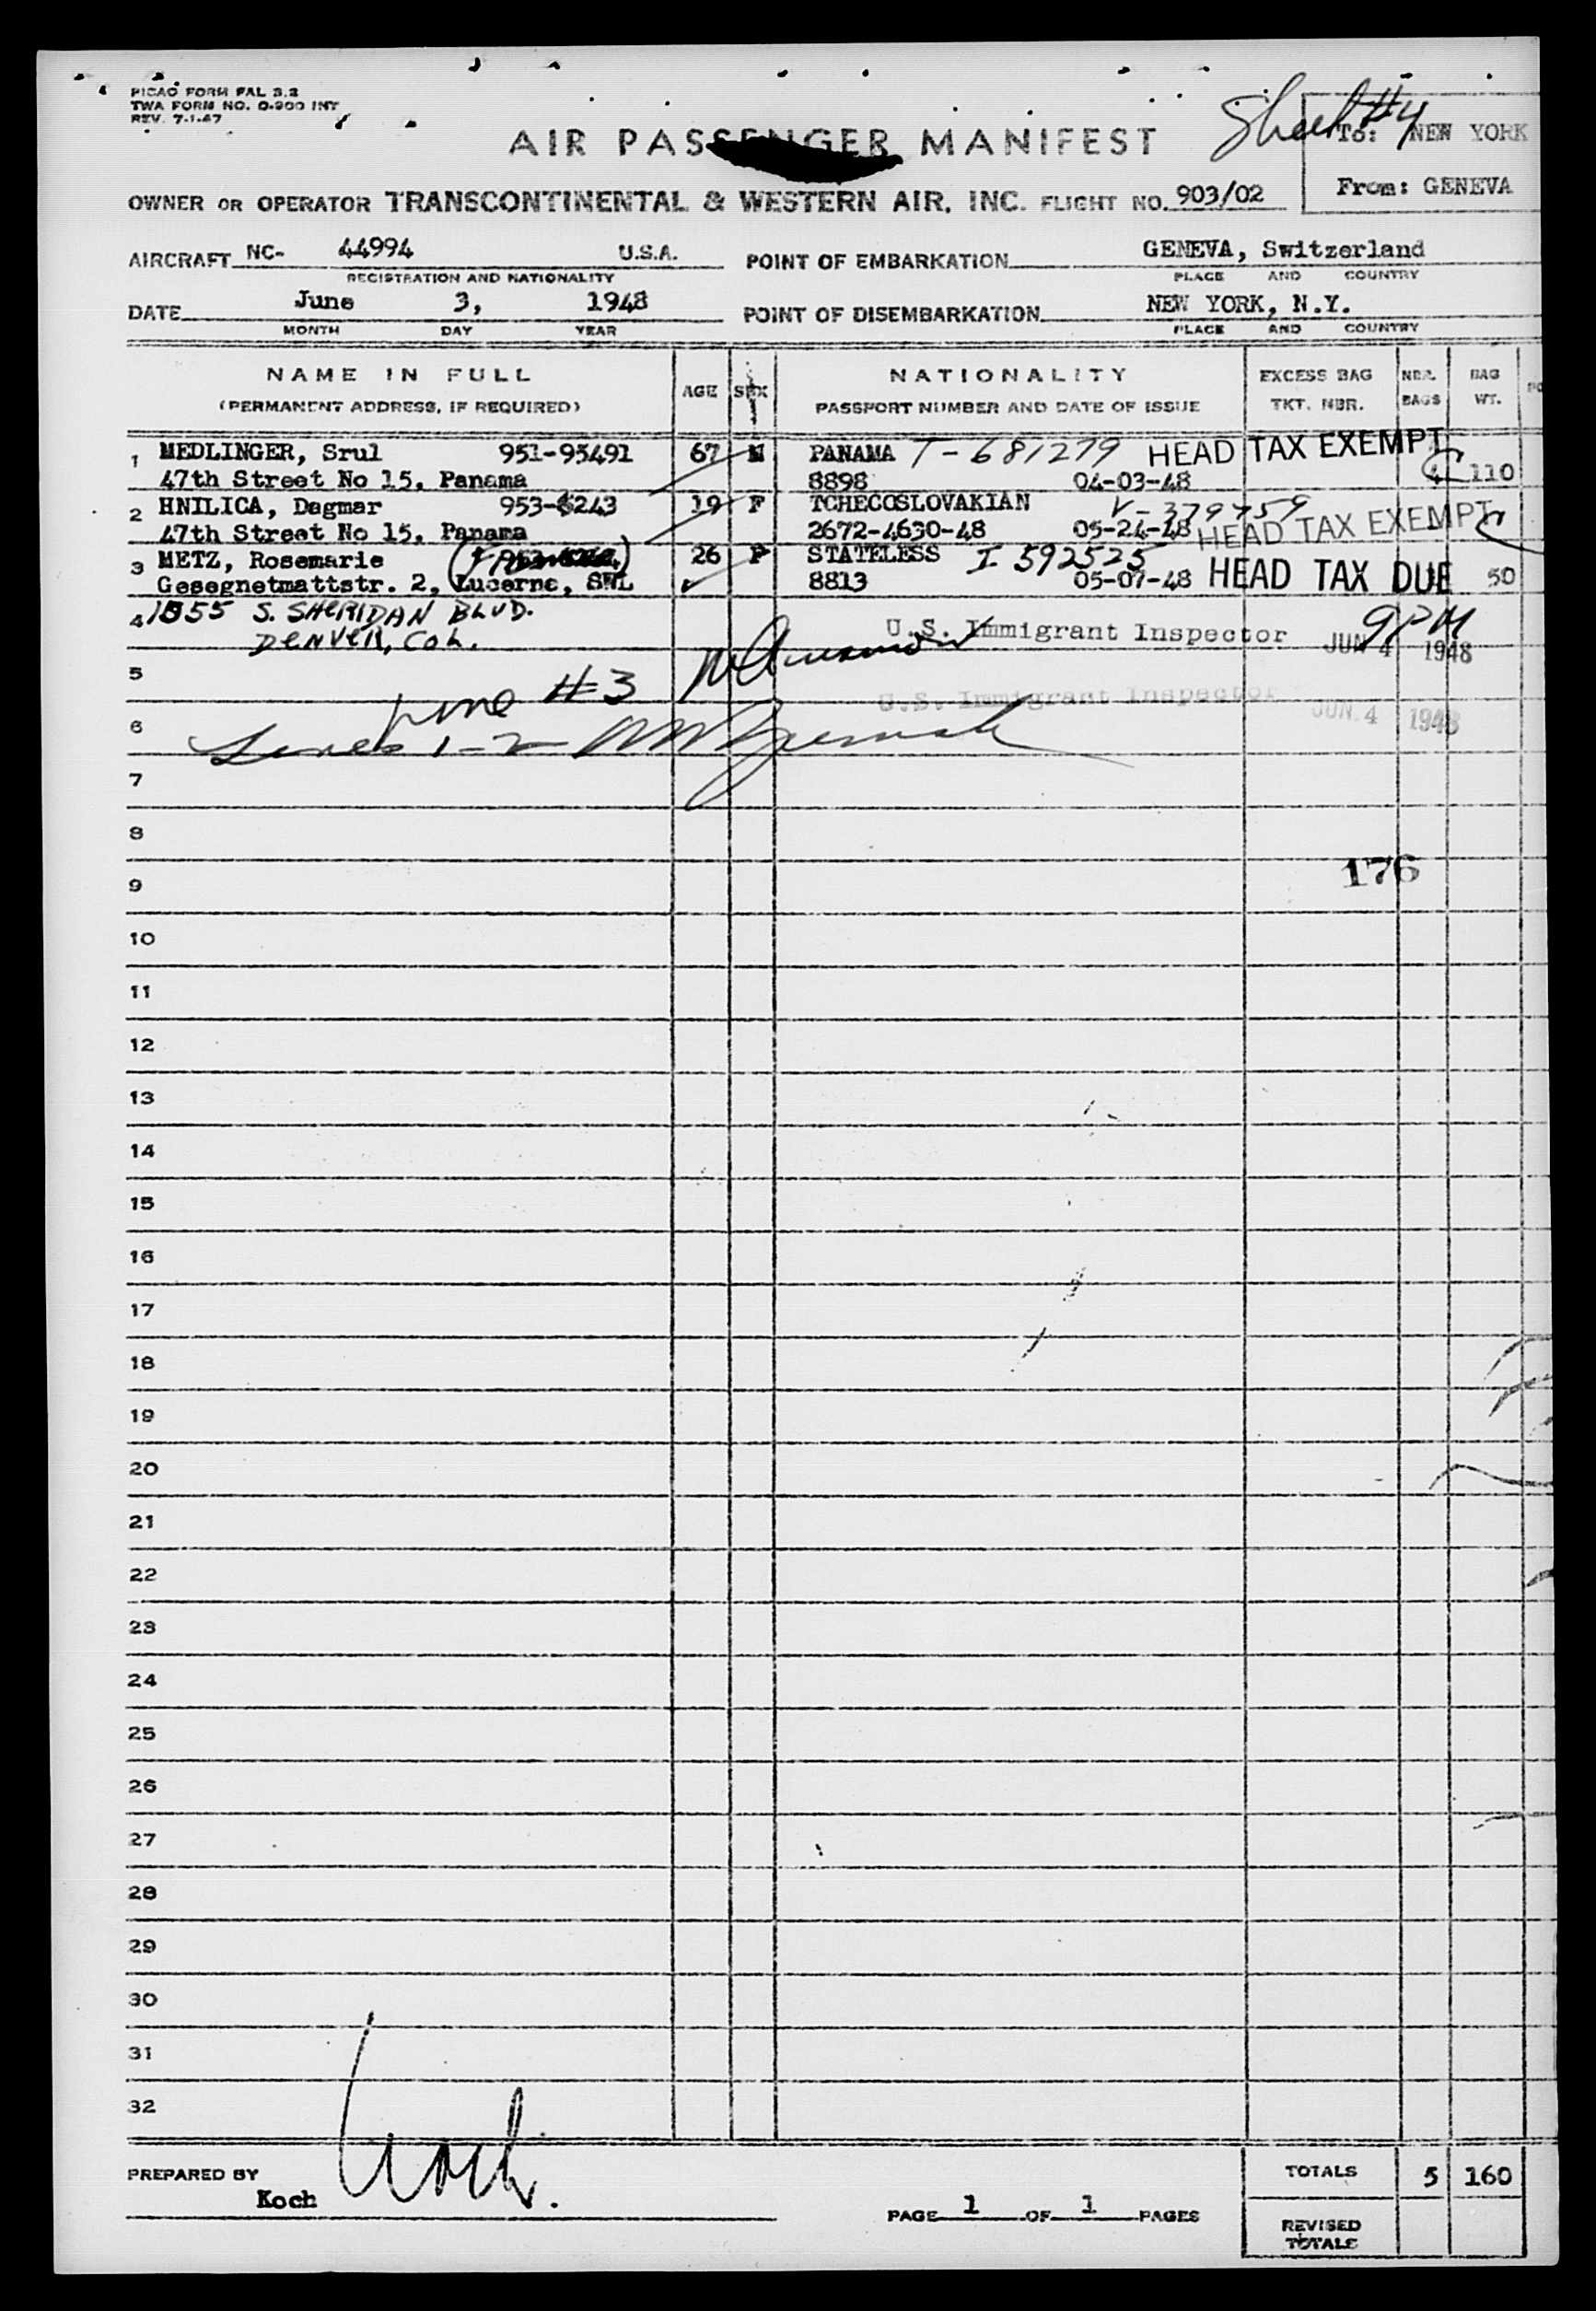 PICAO FORM FAL 3.2
TWA FORM NO. O-900 INT
REV. 7-1-47
Sheet #4
To: NEW YORK
AIR PASSENGER MANIFEST
From: GENEVA
OWNER OR OPERATOR TRANSCONTINENTAL & WESTERN AIR, INC. FLIGHT NO. 903/02
AIRCRAFT NC- 44994 U.S.A. POINT OF EMBARKATION GENEVA, Switzerland
REGISTRATION AND NATIONALITY PLACE AND COUNTRY
DATE June 3, 1948 POINT OF DISEMBARKATION NEW YORK, N.Y.
MONTH DAY YEAR PLACE AND COUNTRY
NAME IN FULL AGE SEX NATIONALITY EXCESS BAG NBR. BAG
(PERMANENT ADDRESS, IF REQUIRED) PASSPORT NUMBER AND DATE OF ISSUE TKT. NBR. BAGS WT.
1 MEDLINGER, Srul 951-95491 67 M PANAMA T-681279 HEAD TAX EXEMPT
47th Street No 15, Panama 8898 04-03-48 4 110
2 HNILICA, Dagmar 953-6243 19 F TCHECOSLOVAKIAN V-379759
47th Street No 15, Panama 2672-4630-48 05-24-48 HEAD TAX EXEMPT
3 METZ, Rosemarie 26 F STATELESS I 592525
Gesegnetmattstr. 2, Lucerne, SWL 8813 05-07-48 HEAD TAX DUE 50
4 1555 S. SHERIDAN BLVD. U.S. Immigrant Inspector 9 PM
DENVER, COL. JUN 4 1948
5 Line #3 U.S. Immigrant Inspector
6 Lines 1-2 JUN 4 1948
7
8
9 176
10
11
12
13
14
15
16
17
18
19
20
21
22
23
24
25
26
27
28
29
30
31
32
PREPARED BY TOTALS 5 160
Koch Koch.
PAGE 1 OF 1 PAGES
REVISED
TOTALS